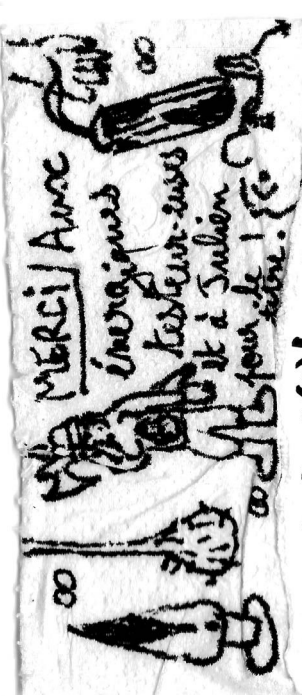 MERCI / Aux
énergiques
testeur-euses
et à Julien
pour le
titre !